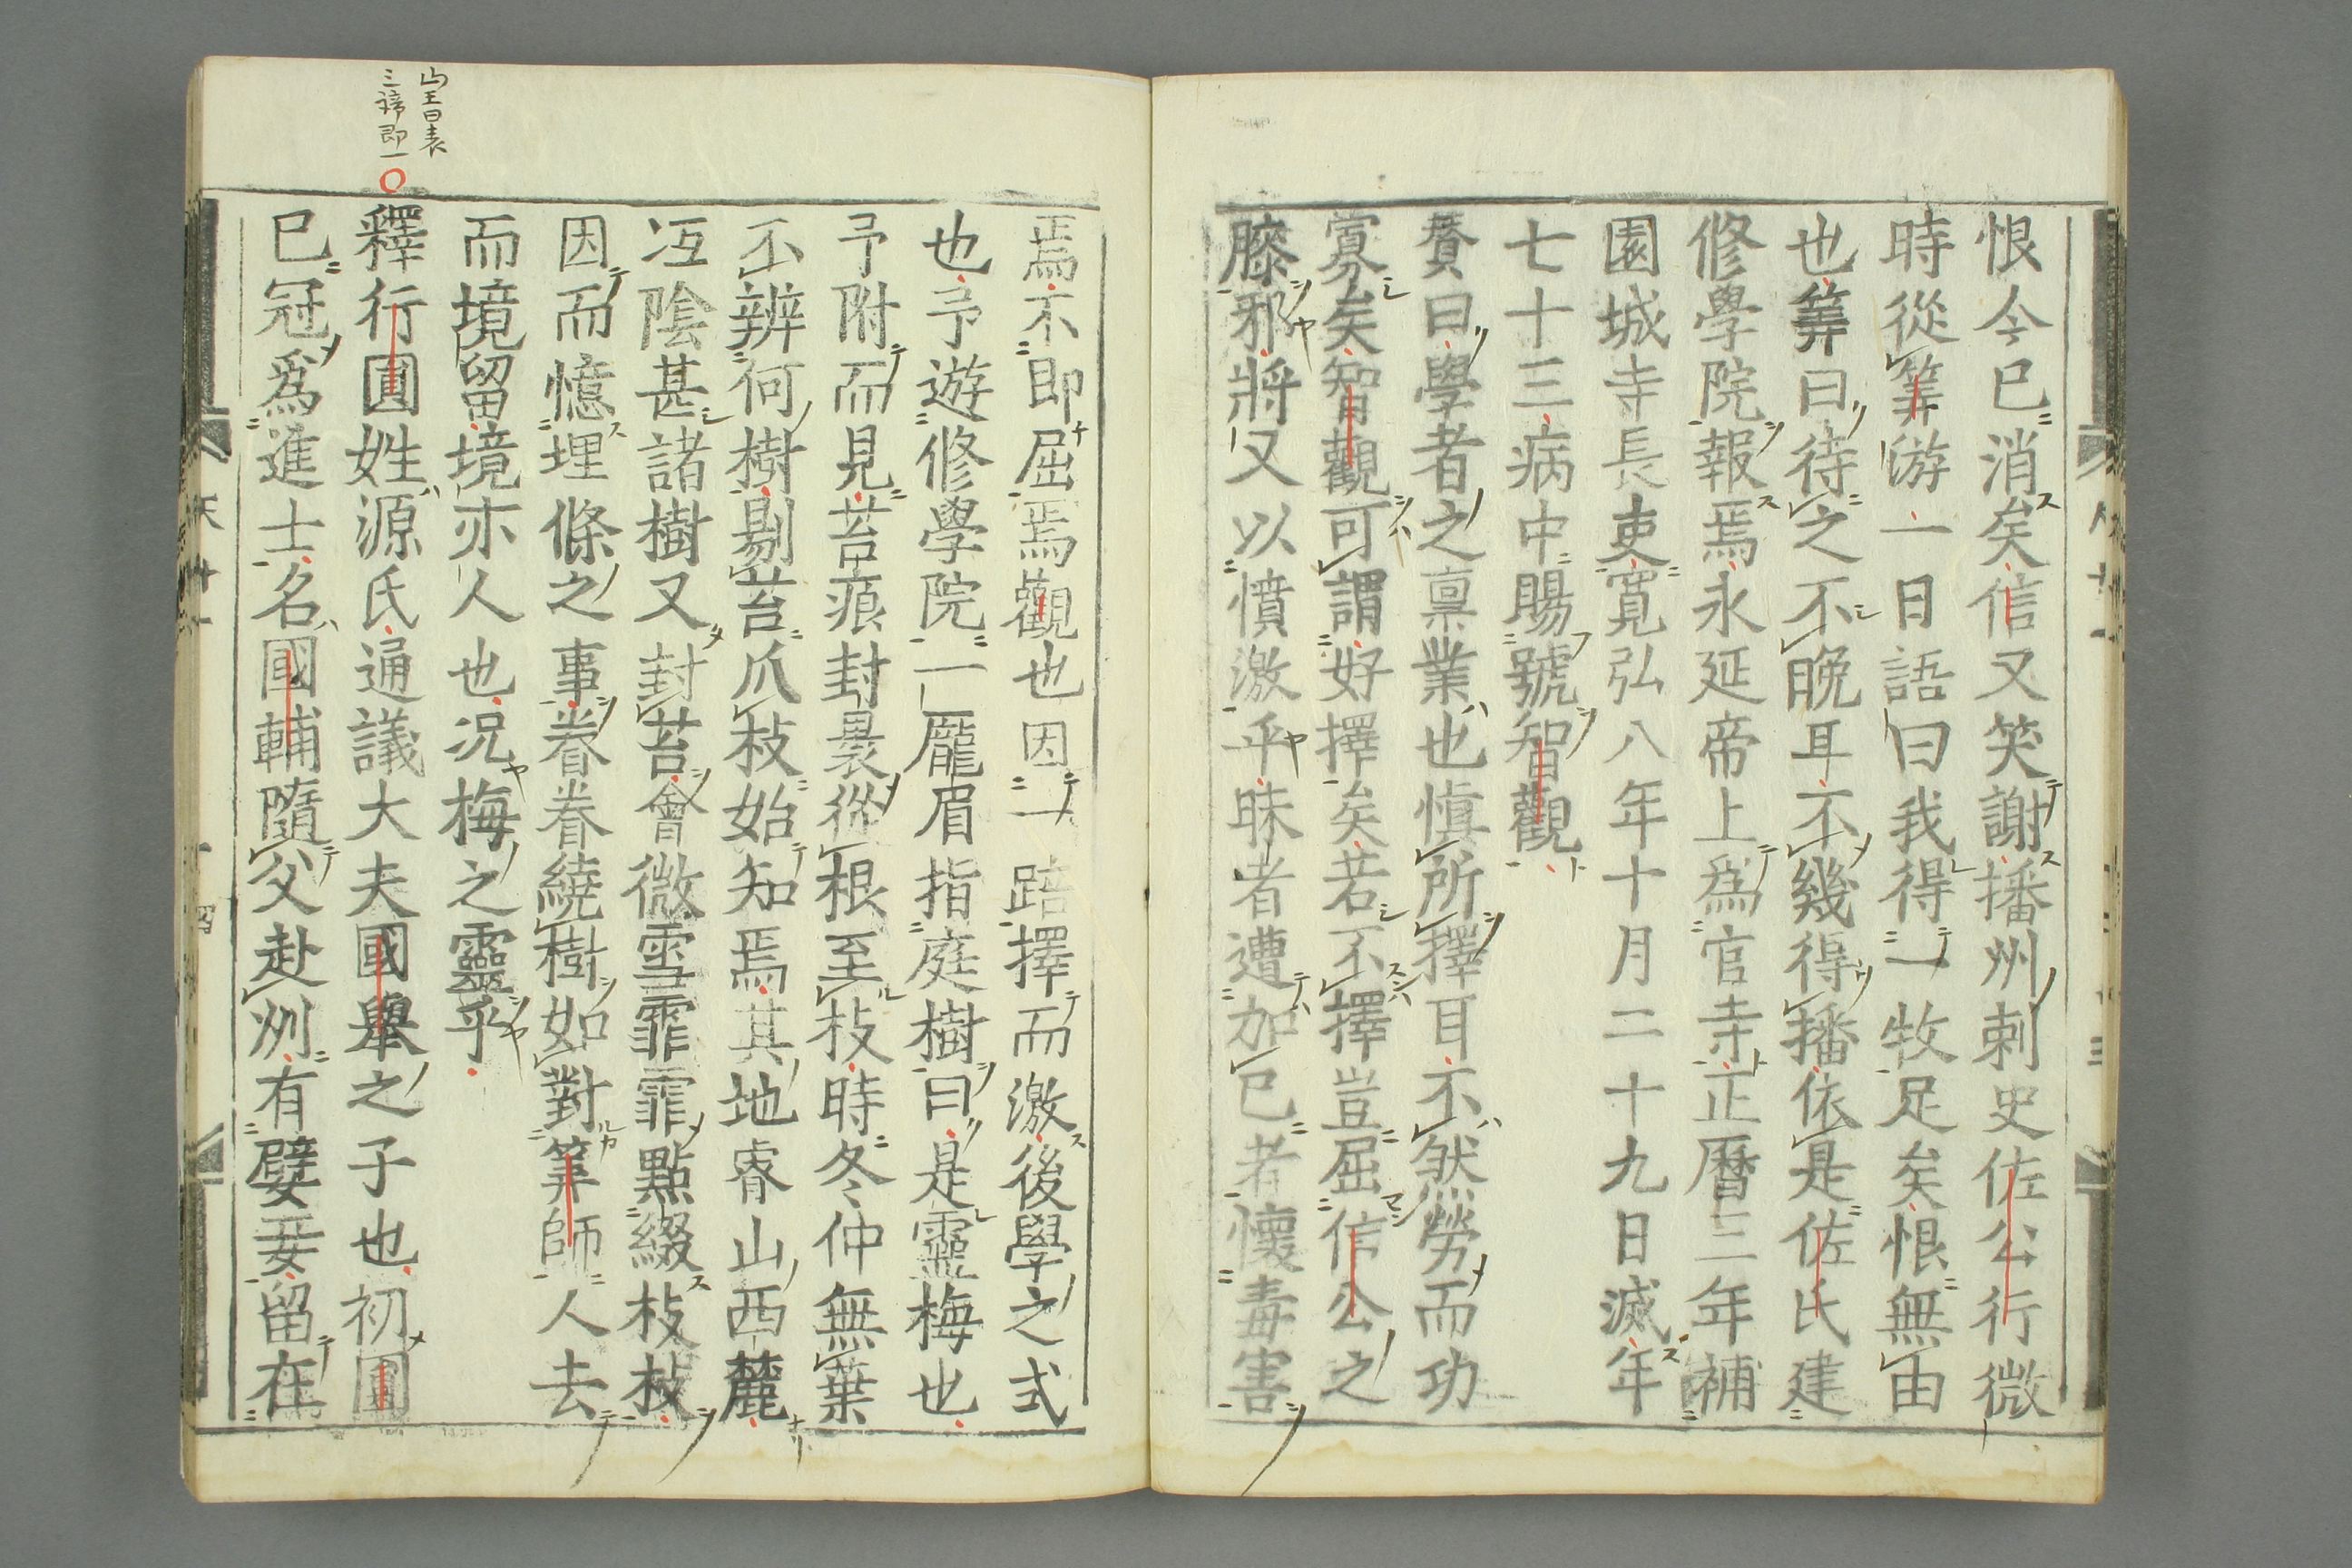 恨今已消矣信又笑謝播州刺史佐公行微
時從筭游一日語曰我得一牧足矣恨無由
也筭曰待之不晩耳不幾得播依是佐氏建
修學院報焉永延帝上爲官寺正曆三年補
園城寺長吏寛弘八年十月二十九日滅年
七十三病中賜號智觀
賛曰學者之禀業也愼所擇耳不然勞而功
寡矣智觀可謂好擇矣若不擇豈屈信公之
膝邪將又以憤激乎昧者遭加已者懷毒害
焉不即屈焉觀也因一踣擇而激後學之式
也予遊修學院一厖眉指庭樹曰是靈梅也
予附而見苔痕封曩從根至枝時冬仲無葉
不辨何樹剔苔爪枝始知焉其地睿山西麓
冱陰甚諸樹又封苔會微雪霏霏點綴枝枝
因而憶埋條之事眷眷繞樹如對筭師人去
而境留境亦人也况梅之靈乎
釋行圓姓源氏通議大夫國舉之子也初圓
已冠爲進士名國輔隨父赴州有嬖妾留在
山王曰表
三諦即一